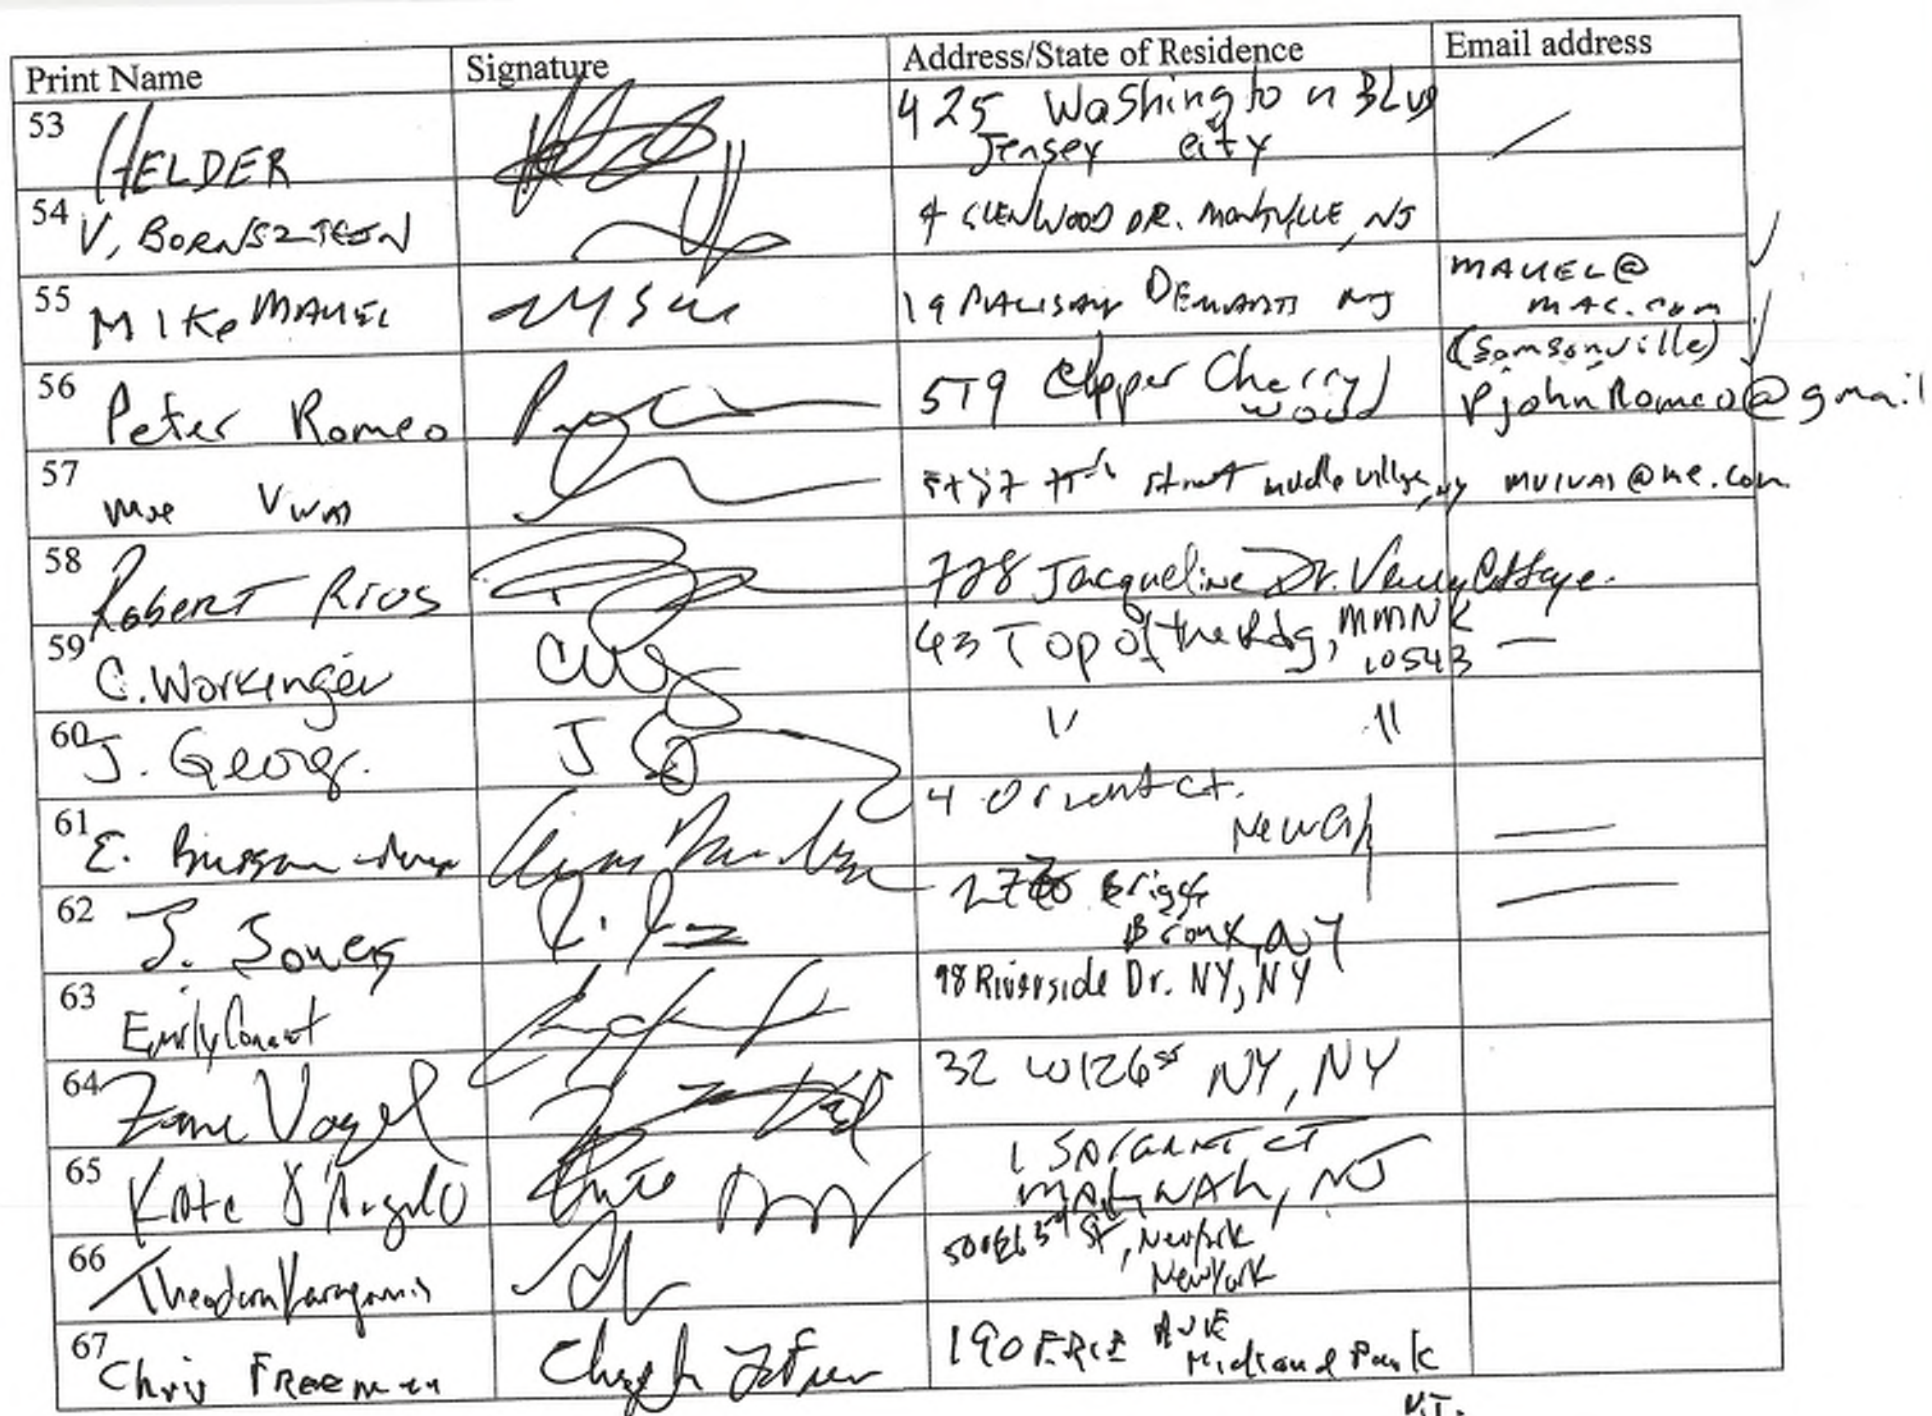 Print Name Signature Address/State of Residence Email address
53 HELDER 425 Washington BLVD
Jersey city
54 V, BORNSZTEJN 4 GLENWOOD DR. MONTVILLE, NJ
55 MIKe MAUEL 19 DEMAREST NJ MAUEL@
MAC.com
56 Peter Romeo 579 Upper Cherry
wood
(Samsonville)
PjohnRomeo@gmail
57 75th street middle village, ny mvivas@me.com
58 Robert Rios 728 Jacqueline Dr. Valley Cottage.
59 C. Workinger 43 Top of the Rdg, MMNK
10543
60 J. Georg. 11 11
61 E. 4 Orient Ct.
62 J. Briggs
Bronx, NY
63 Emily Conant 98 Riverside Dr. NY, NY
64 Zane Vogel 32 W126st NY, NY
65 Kate D'Angelo 1 SARGENT CT
MAHWAH, NJ
66 Theodora Karagiannis 500 E 63rd St, New York
New York
67 Chris Freeman 190 ERIE AVE
Midland Park
NJ.